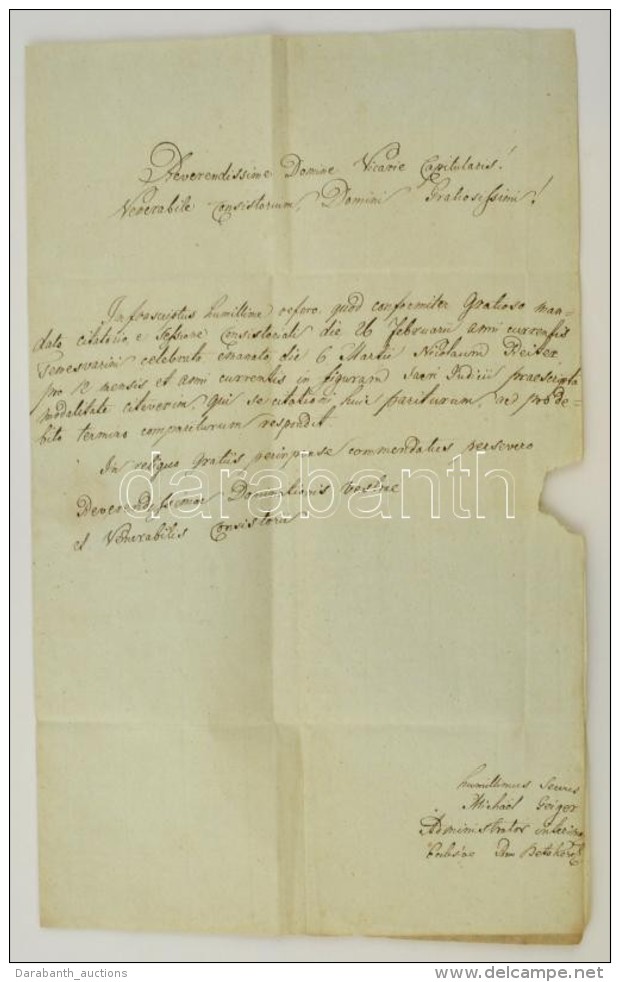 Reverendissime Domine Vicarie Capitularis!
Venerabile Consistorium, Domini Gratiosissimi!
Infrascriptus humillime refero quod conformiter Gratioso man-
dato citatorio e Sessione Consistoriali die 26 Februarii anni currentis
Temesvarini celebrata emanato die 6 Martii Nicolaum Reiter
pro 12 mensis et anni currentis in figuram Sacri Judicii praescripta
modalitate citaverim, qui se citationi huic pariturum, ac pro de-
bito termino compariturum respondit
In reliquo Gratiis perinpense commendatus persevero
darabanth
Reverendissimae Dominationis Vestrae
et Venerabilis Consistorii
humillimus Servus
Michaël Geiger
Administrator interim
Darabanth_auctions
www.delcampe.net